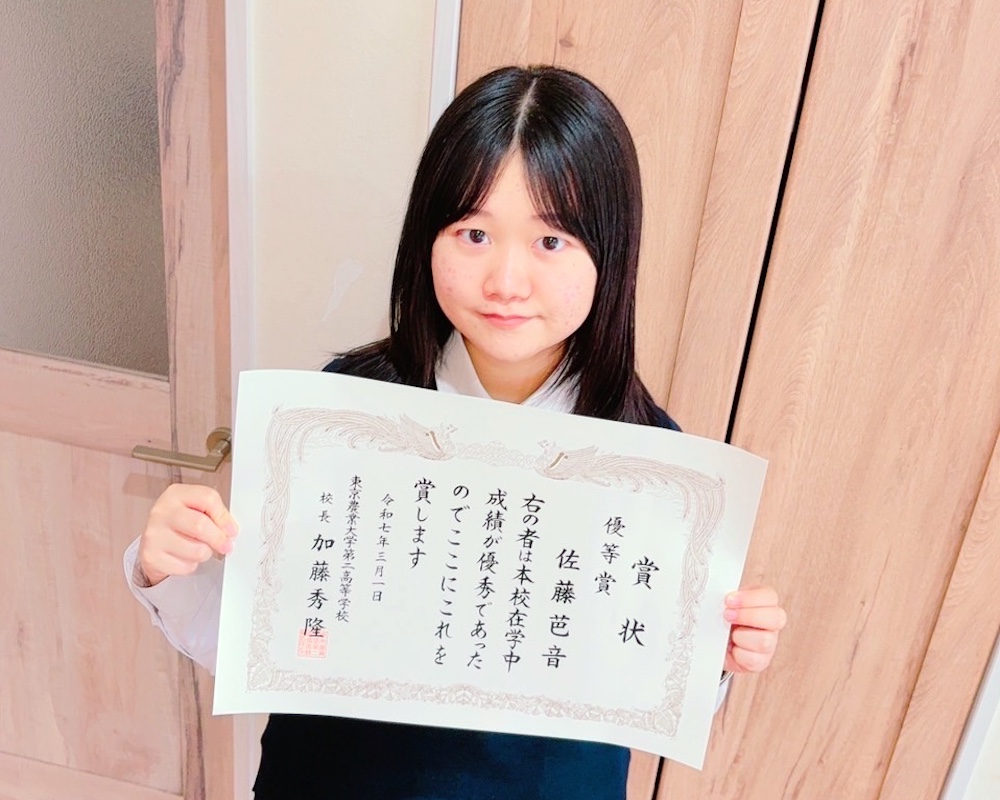 賞状
優等賞
佐藤芭音
右の者は本校在学中
成績が優秀であった
のでここにこれを
賞します
令和七年三月一日
東京農業大学第二高等学校
校長 加藤秀隆